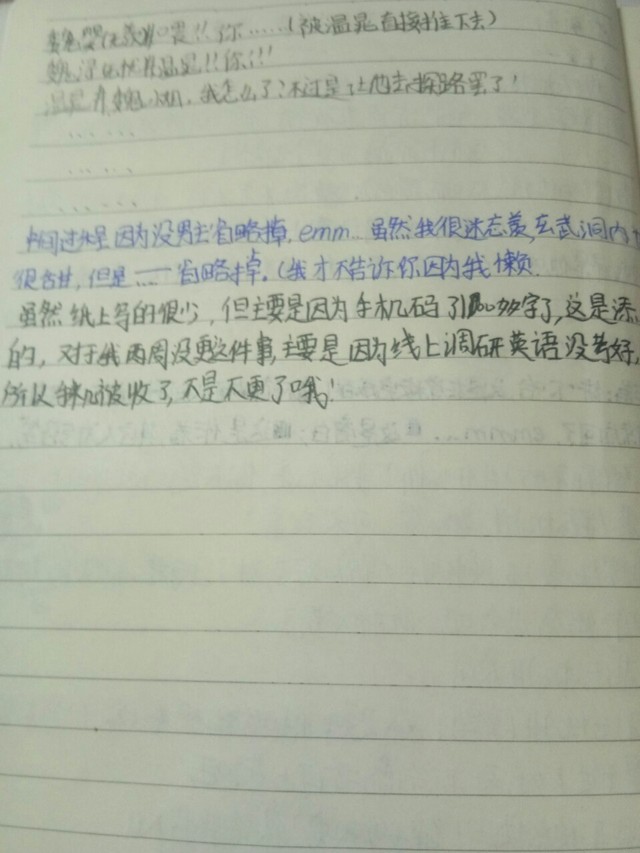 魏婴:喂!!你……(被温晁直接推下去)
温晁!!你!!!
温晁:我怎么了?不过是让他去探路罢了!
……
……
……
中间过程因为没男主省略掉, emm… 虽然我很迷忘羡,玄武洞内
很,但是——省略掉。(我才不告诉你因为我懒
虽然纸上写的很少,但主要是因为手机码了字了,这是添
的,对于我两周没更这件事,主要是因为线上调研英语没考好,
所以手机被收了,不是不更了哦!